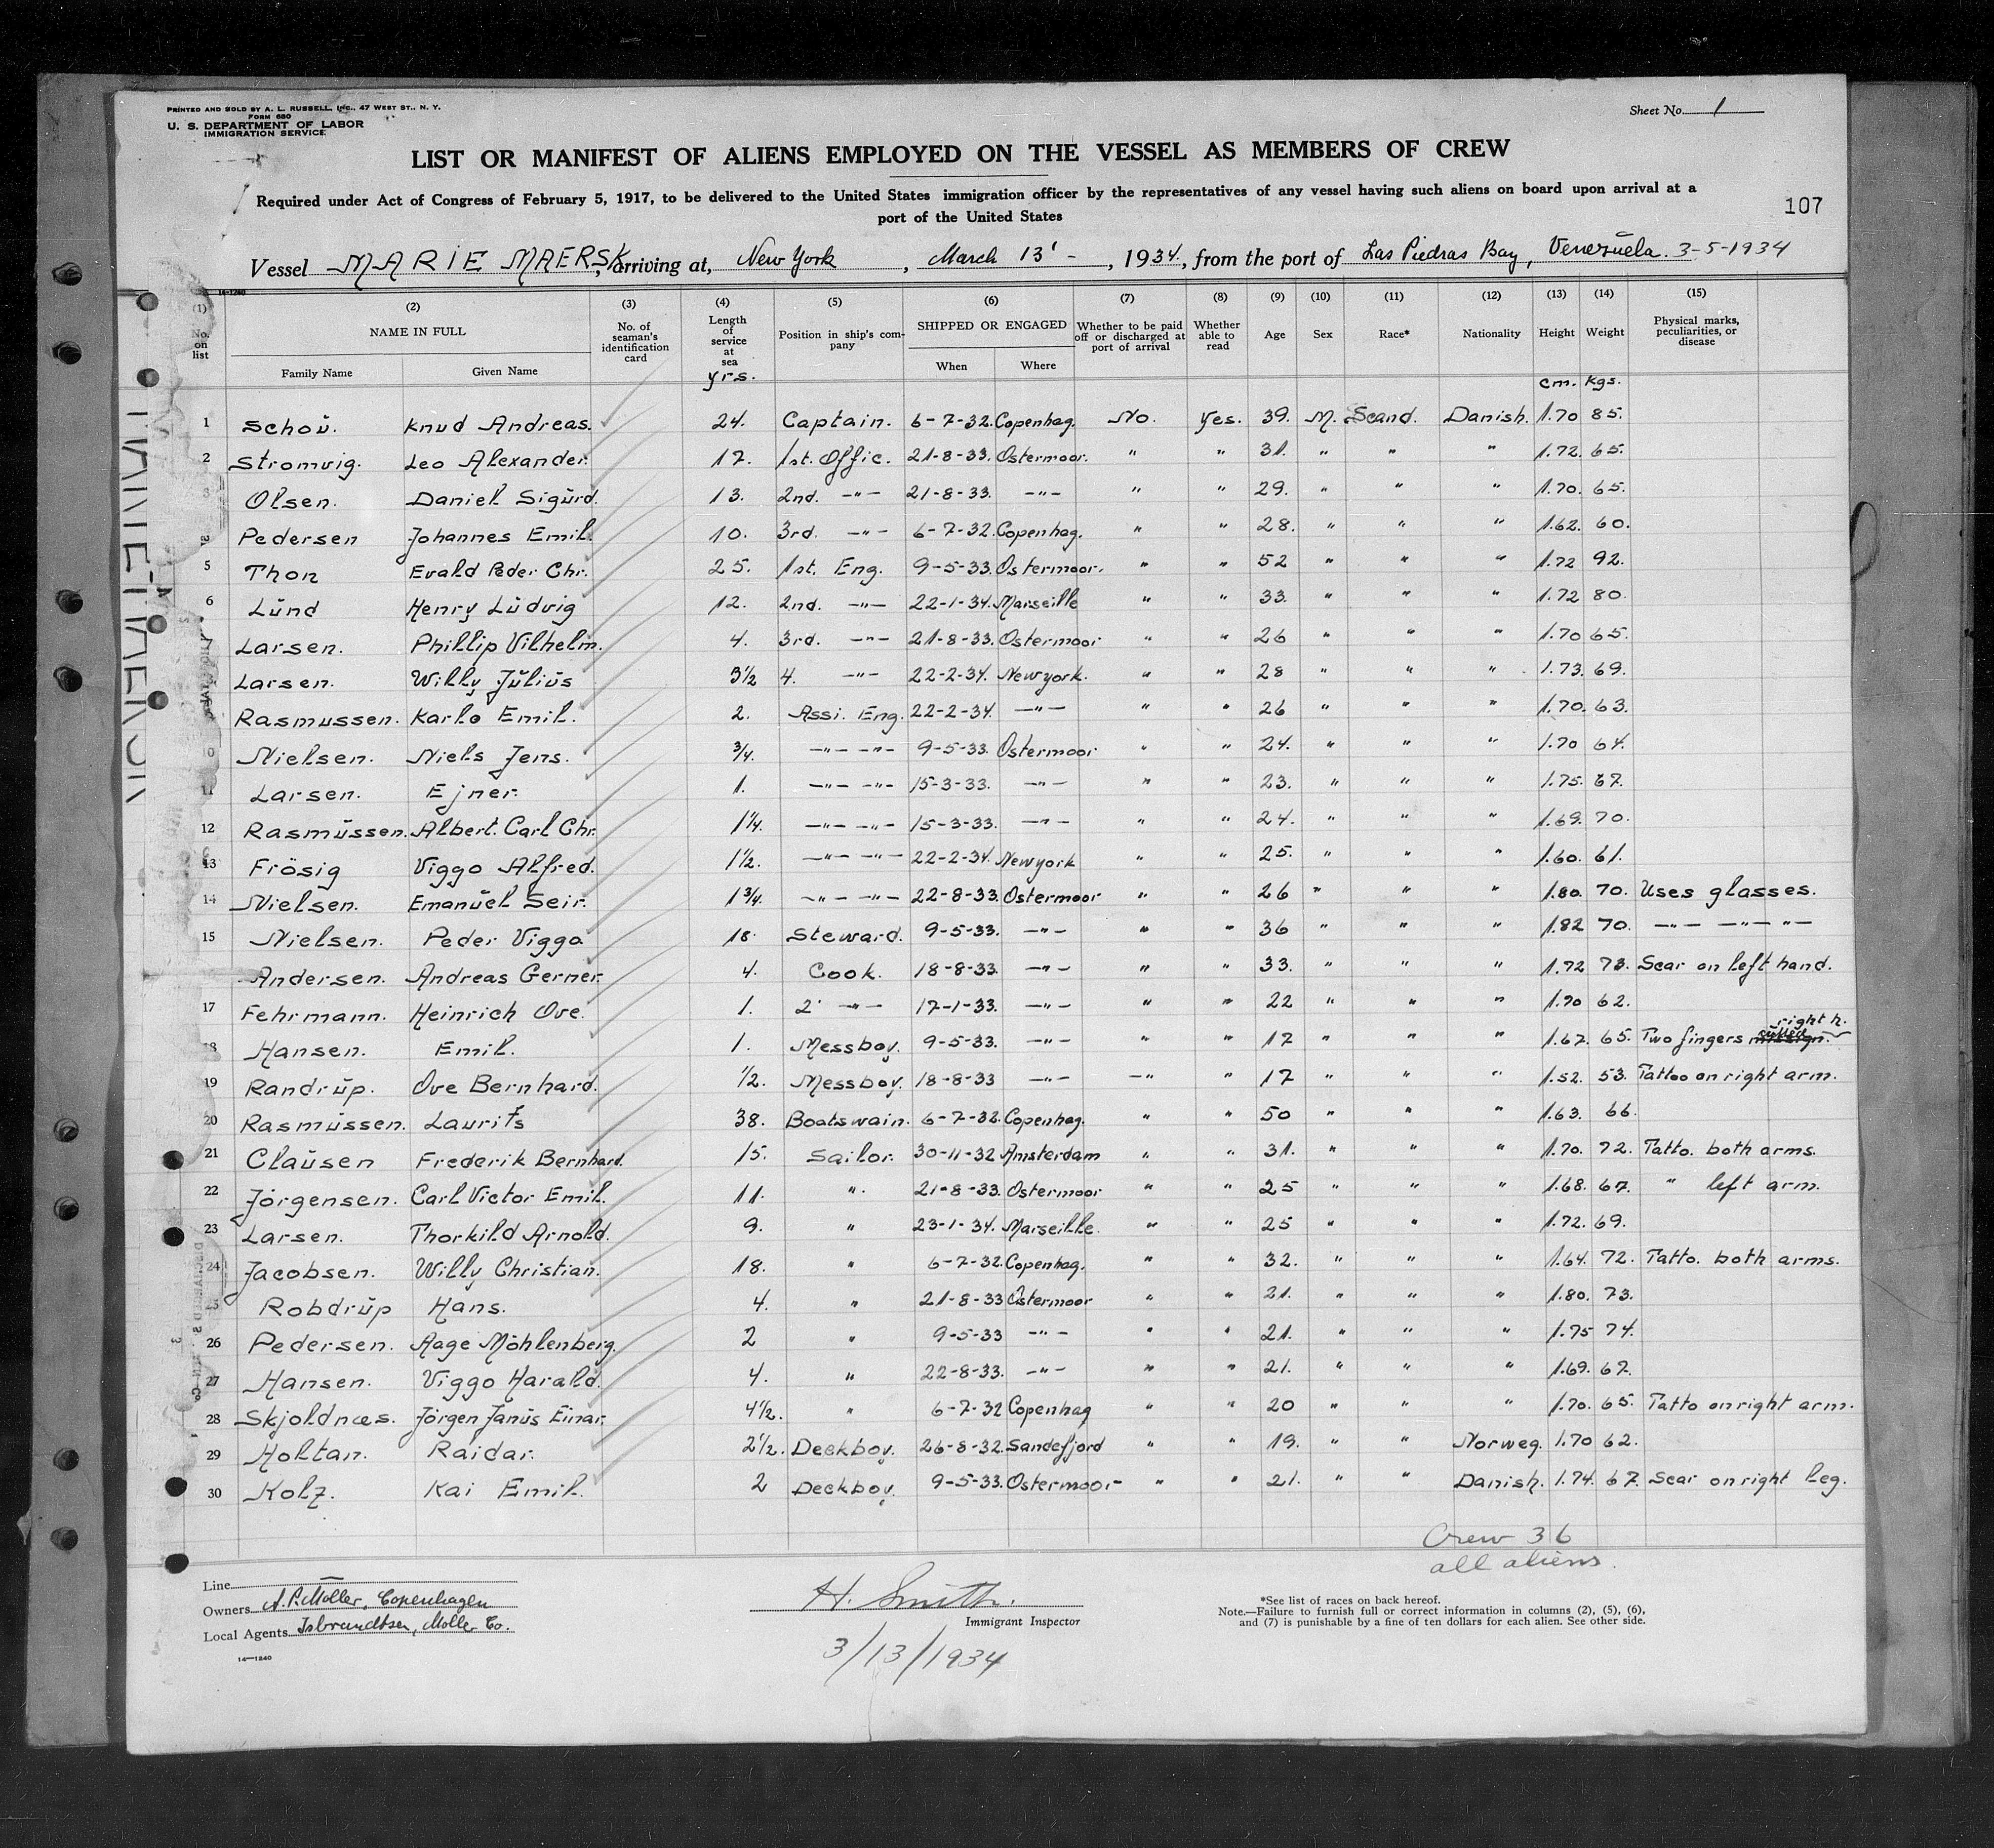 PRINTED AND SOLD BY A. L. RUSSELL, INC., 47 WEST ST., N. Y.
FORM 680
U. S. DEPARTMENT OF LABOR
IMMIGRATION SERVICE
Sheet No. 1
LIST OR MANIFEST OF ALIENS EMPLOYED ON THE VESSEL AS MEMBERS OF CREW
Required under Act of Congress of February 5, 1917, to be delivered to the United States immigration officer by the representatives of any vessel having such aliens on board upon arrival at a
port of the United States
107
Vessel MARIE MAERSK, arriving at, New York, March 13' -, 1934, from the port of Las Piedras Bay, Venezuela. 3-5-1934
14-1240
(1) (2) (3) (4) (5) (6) (7) (8) (9) (10) (11) (12) (13) (14) (15)
No. on list NAME IN FULL Family Name Given Name No. of seaman's identification card Length of service at sea Position in ship's company SHIPPED OR ENGAGED When Where Whether to be paid off or discharged at port of arrival Whether able to read Age Sex Race* Nationality Height Weight Physical marks, peculiarities, or disease
yrs. cm. kgs.
1 Schoü. Knud Andreas. 24. Captain. 6-7-32. Copenhag. No. Yes. 39. M. Scand. Danish. 1.70 85.
2 Stromvig. Leo Alexander. 17. 1st. Offic. 21-8-33. Ostermoor. " " 31. " " " 1.72. 65.
3 Olsen. Daniel Sigürd. 13. 2nd. -"- 21-8-33. -"- " " 29. " " " 1.70. 65.
Pedersen Johannes Emil. 10. 3rd. -"- 6-7-32. Copenhag. " " 28. " " " 1.62. 60.
5 Thon Evald Peder Chr. 25. 1st. Eng. 9-5-33. Ostermoor. " " 52 " " " 1.72 92.
6 Lünd Henry Lüdvig 12. 2nd. -"- 22-1-34. Marseille " " 33. " " " 1.72 80.
7 Larsen. Phillip Vilhelm. 4. 3rd. -"- 21-8-33. Ostermoor " " 26 " " " 1.70 65.
Larsen. Willy Jülius 3½ 4. -"- 22-2-34. New york. " " 28 " " " 1.73. 69.
Rasmussen. Karlo Emil. 2. Assi. Eng. 22-2-34. -"- " " 26 " " " 1.70. 63.
10 Nielsen. Niels Jens. ¾. -"- -"- 9-5-33. Ostermoor " " 24. " " " 1.70 64.
11 Larsen. Ejner. 1. -"- -"- 15-3-33. -"- " " 23. " " " 1.75. 67.
12 Rasmüssen. Albert. Carl Chr. 1¼. -"- -"- 15-3-33. -"- " " 24. " " " 1.69. 70.
13 Frösig Viggo Alfred. 1½. -"- -"- 22-2-34. New york " " 25. " " " 1.60. 61.
14 Nielsen. Emanüel Seir. 1¾. -"- -"- 22-8-33. Ostermoor " " 26 " " " 1.80. 70. Uses glasses.
15 Nielsen. Peder Viggo 18. Steward. 9-5-33. -"- " " 36 " " " 1.82 70. -"- -"-"-
Andersen. Andreas Gerner. 4. Cook. 18-8-33. -"- " " 33. " " " 1.72 73. Scar on left hand.
17 Fehrmann. Heinrich Ove. 1. 2' -"- 17-1-33. -"- " " 22 " " " 1.70 62.
18 Hansen. Emil. 1. Messboy. 9-5-33. -"- " " 17 " " " 1.67. 65. Two fingers right h.
19 Randrüp. Ove Bernhard. ½. Messboy. 18-8-33 -"- -" " 17 " " " 1.52. 53. Tattoo on right arm.
20 Rasmüssen. Laurits 38. Boatswain. 6-7-32. Copenhag. " " 50 " " " 1.63. 66.
21 Claüsen Frederik Bernhard. 15. Sailor. 30-11-32 Amsterdam " " 31. " " " 1.70. 72. Tatto. both arms.
22 Jörgensen. Carl Victor Emil. 11. ". 21-8-33. Ostermoor " " 25 " " " 1.68. 67. " left arm.
23 Larsen. Thorkild Arnold. 9. " 23-1-34. Marseille. " " 25 " " " 1.72. 69.
24 Jacobsen. Willy Christian. 18. " 6-7-32. Copenhag. " " 32. " " " 1.64. 72. Tatto. both arms.
25 Robdrüp Hans. 4. " 21-8-33 Ostermoor " " 21. " " " 1.80. 73.
26 Pedersen. Aage Möhlenberg. 2 " 9-5-33 -"- " " 21. " " " 1.75 74.
27 Hansen. Viggo Harald. 4. " 22-8-33. -"- " " 21. " " " 1.69. 67.
28 Skjoldnæs. Jörgen Janüs Einar. 4½. " 6-7-32 Copenhag " " 20 " " " 1.70. 65. Tatto on right arm.
29 Holtan. Raidar. 2½. Deckboy. 26-8-32. Sandefjord " " 19. " " Norweg. 1.70 62.
30 Kolz. Kai Emil. 2 Deckboy. 9-5-33. Ostermoor- " " 21. " " Danish. 1.74. 67. Scar on right leg.
Crew 36
all aliens.
Line
Owners A. P. Moller, Copenhagen
Local Agents Isbrandtsen, Moller Co.
14-1240
H. Smith.
Immigrant Inspector
3/13/1934
*See list of races on back hereof.
Note.—Failure to furnish full or correct information in columns (2), (5), (6),
and (7) is punishable by a fine of ten dollars for each alien. See other side.